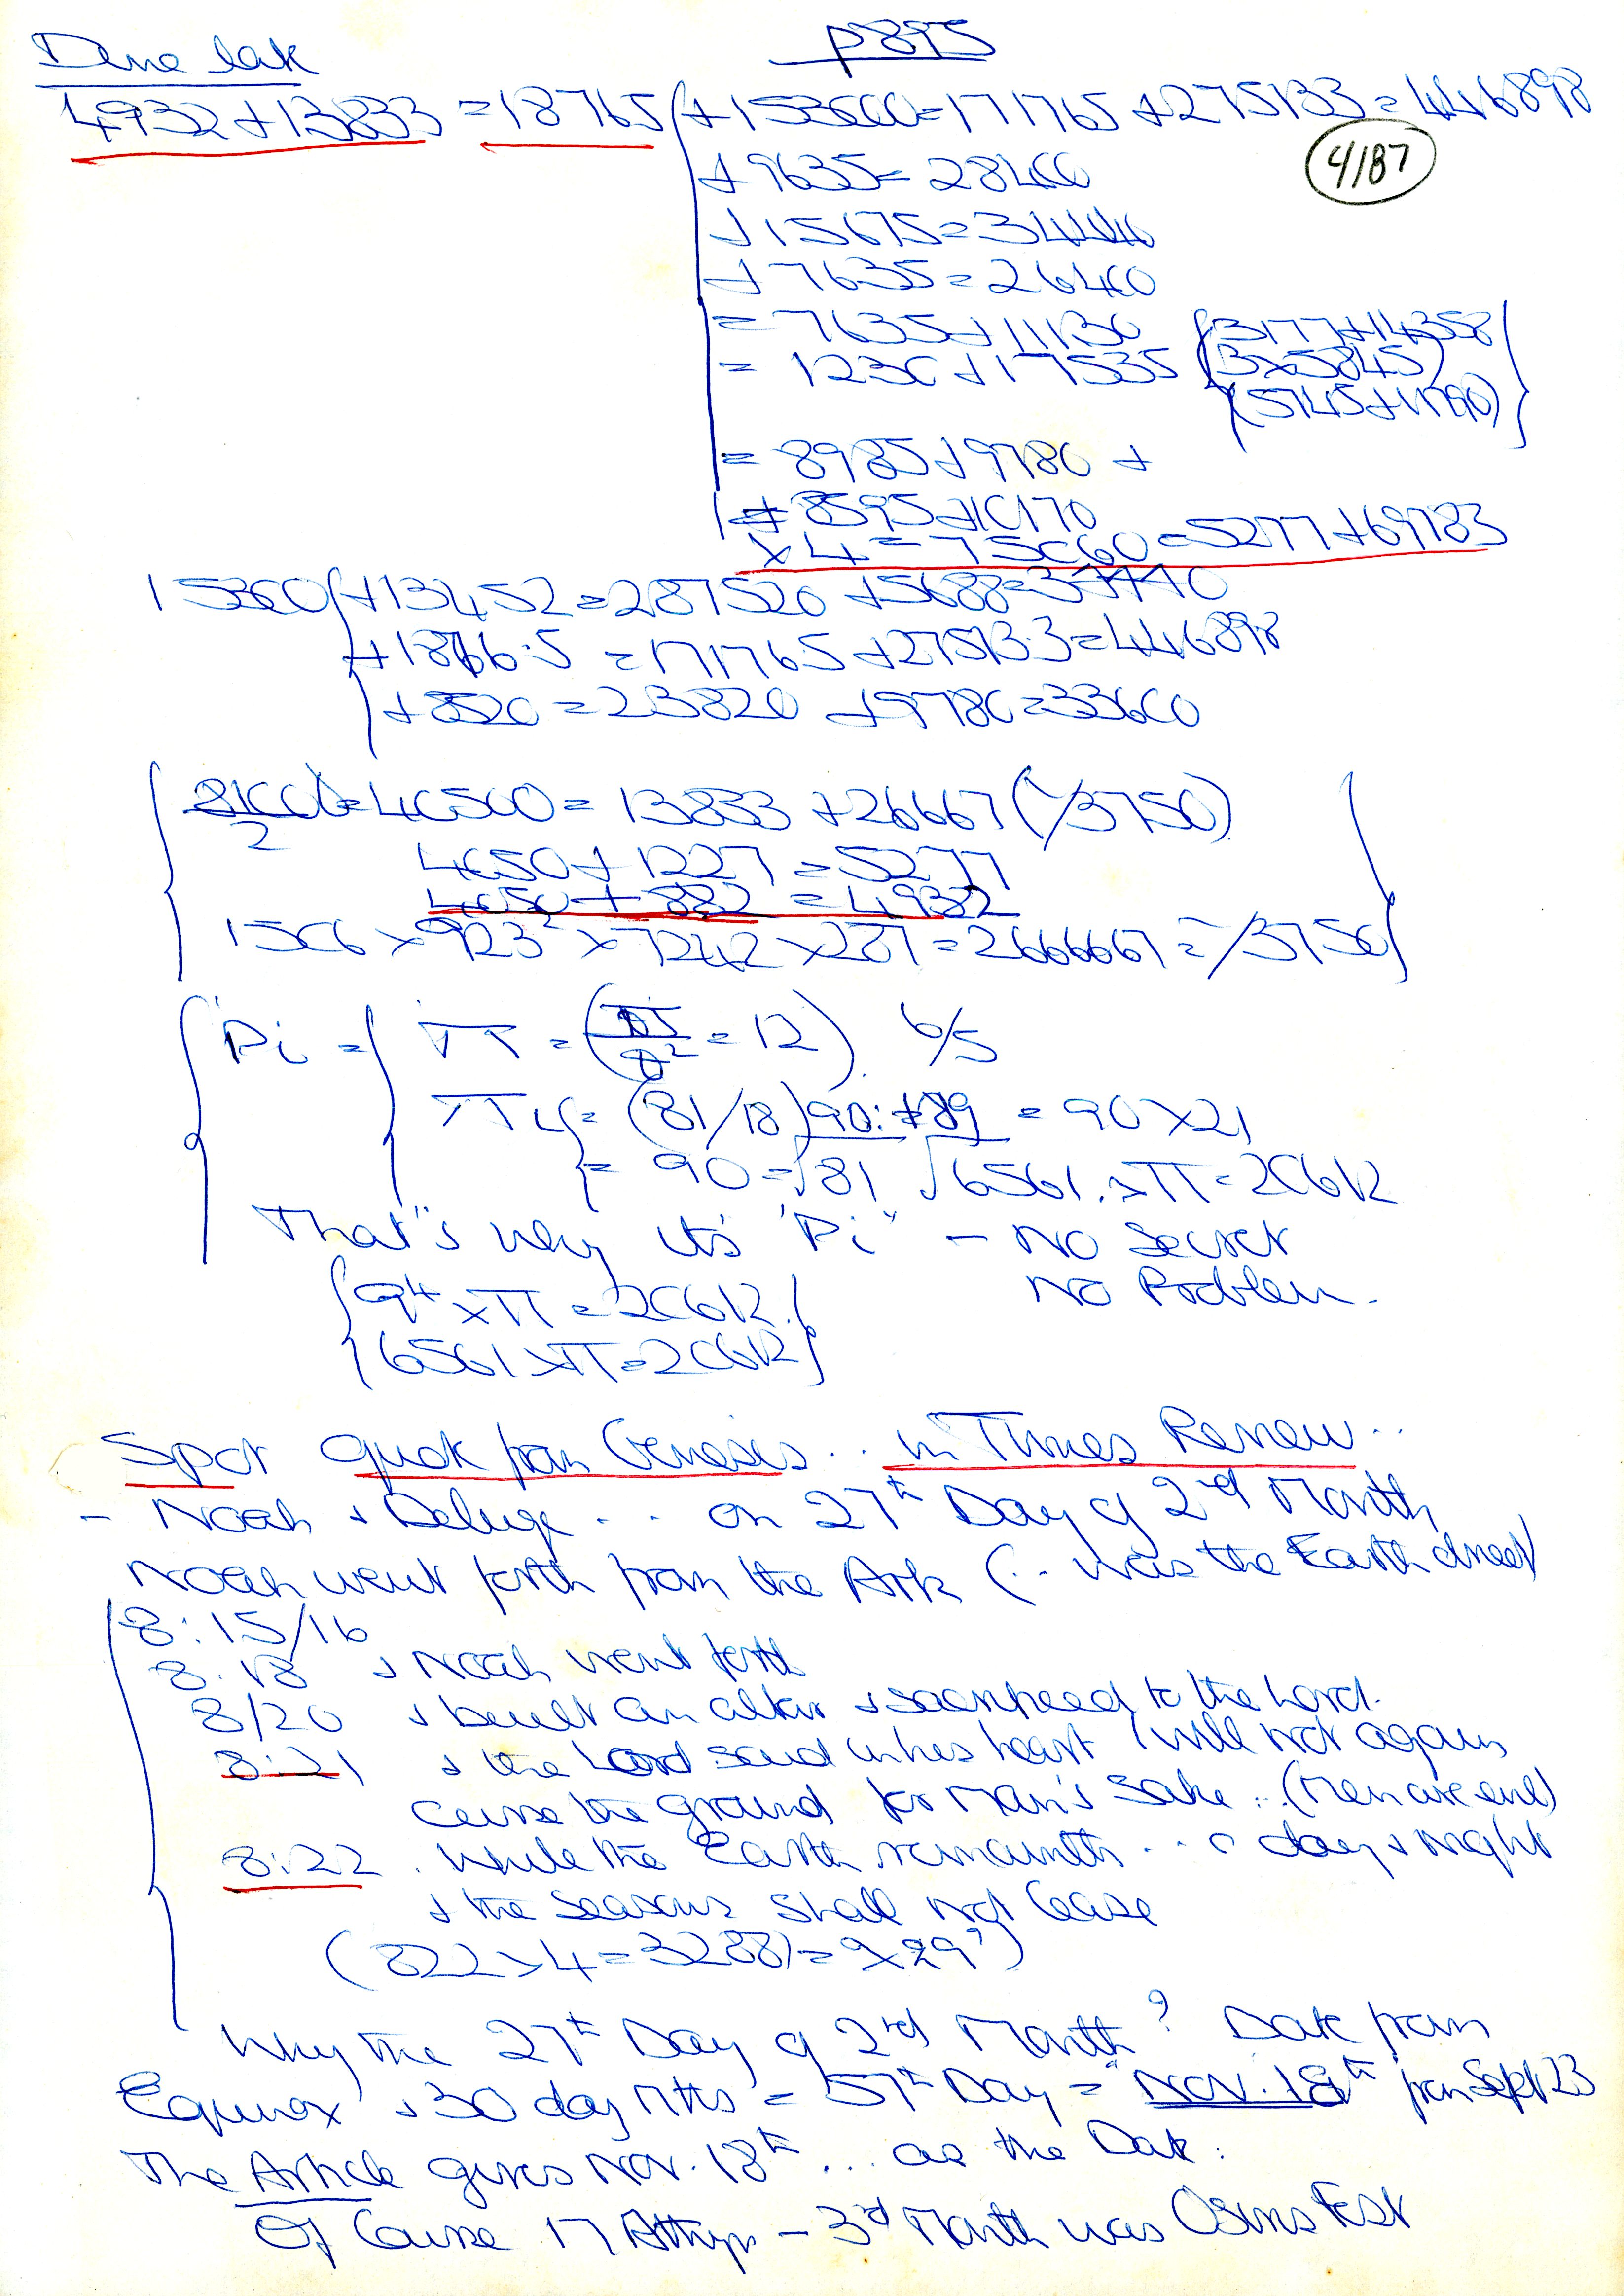 p895
4932 + 13833 = 18765 + 153000 = 171765 + 275133 = 446898
4/87
+ 9635 = 28400
+ 15675 = 34440
+ 7635 = 26400
= 7635 + 11130 (3177 + 14358)
= 1230 + 17535 (3 x 5845)
(5745 + 11790)
= 8985 + 9780 +
8595 + 10170
x 4 = 75060 = 5277 + 69783
15300 + 13452 = 287520 + 5688 =
+ 1876.5 = 171765 + 27513.3 = 446898
+ 8520 = 23820 + 9780 = 33600
81000/2 = 40500 = 13833 + 26667 (1/3750)
4050 + 1227 = 5277
4050 + 882 = 4932
1506 x 923² x 7242 x 287 = 2666667 = 1/3750
'Pi' = π = ( = 12) 6/5
= (81/18) 90: + 89 = 90 x 21
= 90 = √81 √6561. x π = 20612
That's why it's 'Pi' - No Secret
No Problem.
9⁴ x π = 20612
6561 x π = 20612
Spot quote from Genesis .. in Times Review ..
- Noah + Deluge .. on 27th Day of 2nd Month
Noah went forth from the Ark (.. was the Earth dried)
8:15/16
8:18 + Noah went forth
8/20 + built an altar + sacrificed to the Lord.
8:21 + the Lord said in his heart I will not again
curse the ground for Man's sake .. (Men are evil)
8:22 . While the Earth remaineth .. day + night
+ the seasons shall not cease
(822 x 4 = 3288) = 9 x 29²)
Why the 27th Day of 2nd Month? Date from
Equinox + 30 day Mths = 57th Day = Nov. 18th from Sept 23
The Article gives Nov. 18th ... as the Date:
Of Course 17 Athyr - 3rd Month was Osiris Fest